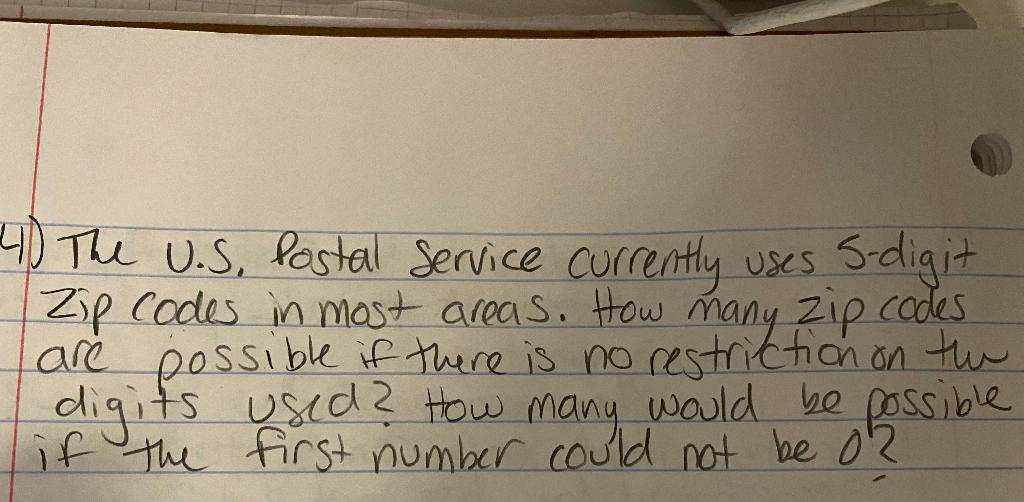 4) The U.S. Postal Service currently uses 5-digit
Zip Codes in most areas. How many zip codes
are possible if there is no restriction on the
digits used? How many would be possible
if the first number could not be 0?